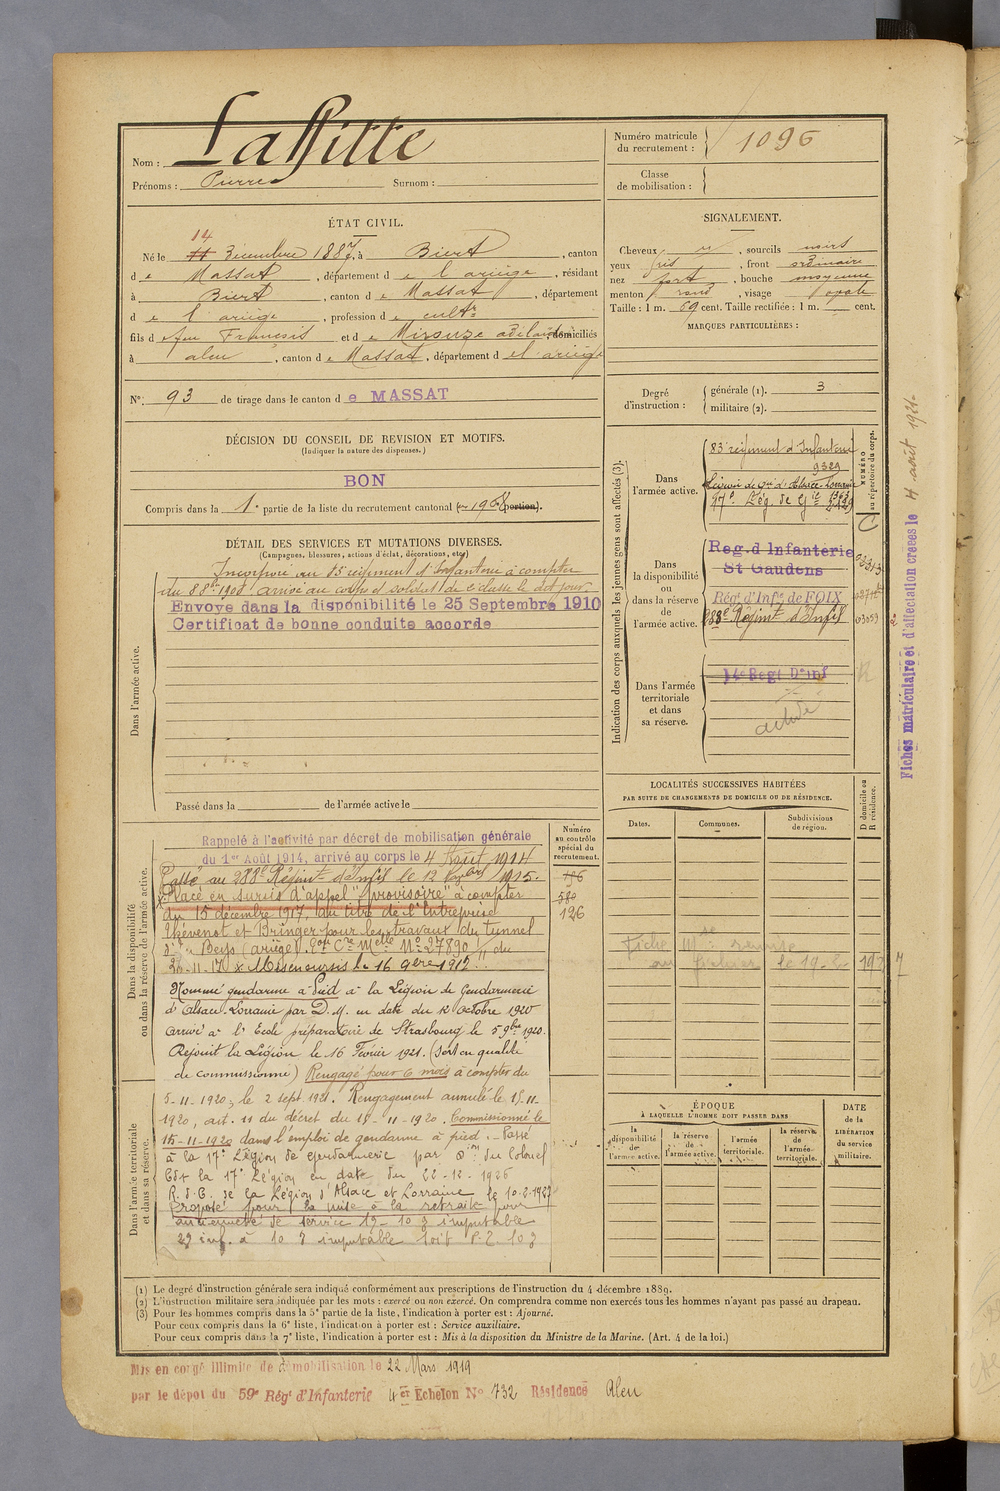 Nom : Laffitte
Prénoms : Pierre Surnom :
Numéro matricule du recrutement : 1096
Classe de mobilisation :
ÉTAT CIVIL.
14
Né le 11 Décembre 1887, à Biert, canton
de Massat, département de l'ariège, résidant
à Biert, canton de Massat, département
de l'ariège, profession de cultr
fils de feu Francois et de Mirouze adélaïde, domiciliés
à aleu, canton de Massat, département de l'ariège
N° : 93 de tirage dans le canton de MASSAT
DÉCISION DU CONSEIL DE REVISION ET MOTIFS.
(Indiquer la nature des dispenses.)
BON
Compris dans la 1e partie de la liste du recrutement cantonal (de 1908 portion).
DÉTAIL DES SERVICES ET MUTATIONS DIVERSES.
(Campagnes, blessures, actions d'éclat, décorations, etc.)
Incorporé au 83 régiment d'Infanterie à compter
du 8 8bre 1908 arrivé au corps et soldat de 2e classe le dit jour
Envoyé dans la disponibilité le 25 Septembre 1910
Certificat de bonne conduite accordé
Dans l'armée active.
Passé dans la de l'armée active le
Dans la disponibilité ou dans la réserve de l'armée active.
Numéro au contrôle spécial du recrutement.
Rappelé à l'activité par décret de mobilisation générale
du 1er Août 1914, arrivé au corps le 4 Août 1914
Passé au 288e Régiment d'Infie le 12 1915.
Placé en sursis d'appel "provisoire" à compter
du 15 décembre 1917, au titre de l'Entreprise
Thévenot et Bringer pour les travaux du tunnel
Beys (ariège). Con Cre Melle No 27890 du
26-11-17 x Mis en sursis le 16 9bre 1917
580
126
Nommé gendarme à Pied à la Légion de Gendarmerie
d'Alsace-Lorraine par D. M. en date du 12 Octobre 1920
arrivé à l'Ecole préparatoire de Strasbourg le 5 9bre 1920.
Rejoint la Légion le 16 Février 1921. (Sert en qualité
de commissionné) Rengagé pour 6 mois à compter du
5-11-1920; le 2 sept. 1921. Rengagement annulé le 15-11-
1920, art. 11 du décret du 15-11-1920. Commissionné le
15-11-1920 dans l'emploi de gendarme à pied. - Passé
à la 17e Légion de gendarmerie par Don du Colonel
Cdt la 17e Légion en date du 22-12-1926
R. d. C. de la Légion d'Alsace et Lorraine le 10-2-1927
Proposé pour la mise à la retraite pour
ancienneté de service 19- 10 3 imputable
à 10 3 imputable loi
Dans l'armée territoriale et dans sa réserve.
SIGNALEMENT.
Cheveux , sourcils noirs
yeux gris , front ordinaire
nez fort , bouche moyenne
menton rond , visage ovale
Taille : 1 m. 69 cent. Taille rectifiée : 1 m. cent.
MARQUES PARTICULIÈRES :
Degré d'instruction : générale (1). 3
militaire (2).
Indication des corps auxquels les jeunes gens sont affectés (3).
NUMÉRO au répertoire du corps.
Dans l'armée active.
83 régiment d'Infanterie
9329
Légion de Gie d'Alsace-Lorraine
17e Lég. de Gie
C
Dans la disponibilité ou dans la réserve de l'armée active.
Reg. d Infanterie
St Gaudens
Régt d'Infie de FOIX
288e Régiment d'Infie
03059
Dans l'armée territoriale et dans sa réserve.
14e Regt D'inf
LOCALITÉS SUCCESSIVES HABITÉES
PAR SUITE DE CHANGEMENTS DE DOMICILE OU DE RÉSIDENCE.
Dates. Communes. Subdivisions de région. D domicile ou R résidence.
Fiche remise
au le 19- 1937
ÉPOQUE
À LAQUELLE L'HOMME DOIT PASSER DANS
la disponibilité de l'armée active. la réserve de l'armée active. l'armée territoriale. la réserve de l'armée territoriale.
DATE de la LIBÉRATION du service militaire.
Fiches matriculaire et d'affectation créées le 4 août 1921
(1) Le degré d'instruction générale sera indiqué conformément aux prescriptions de l'instruction du 4 décembre 1889.
(2) L'instruction militaire sera indiquée par les mots : exercé ou non exercé. On comprendra comme non exercés tous les hommes n'ayant pas passé au drapeau.
(3) Pour les hommes compris dans la 5e partie de la liste, l'indication à porter est : Ajourné.
Pour ceux compris dans la 6e liste, l'indication à porter est : Service auxiliaire.
Pour ceux compris dans la 7e liste, l'indication à porter est : Mis à la disposition du Ministre de la Marine. (Art. 4 de la loi.)
Mis en congé illimité de démobilisation le 22 Mars 1919
par le dépôt du 59e Régt d'Infanterie 4er Echelon No 732 Résidence Aleu